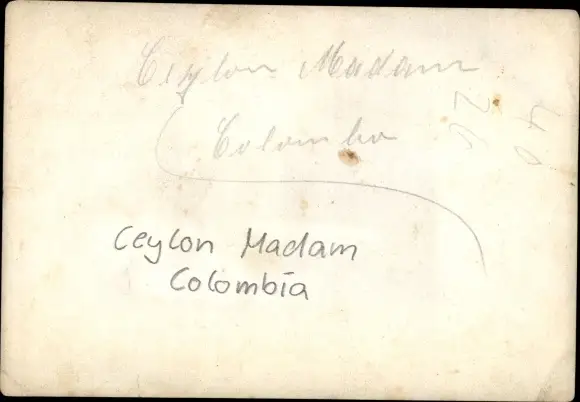 Ceylon Madam
Colombo
26
40
Ceylon Madam
Colombia